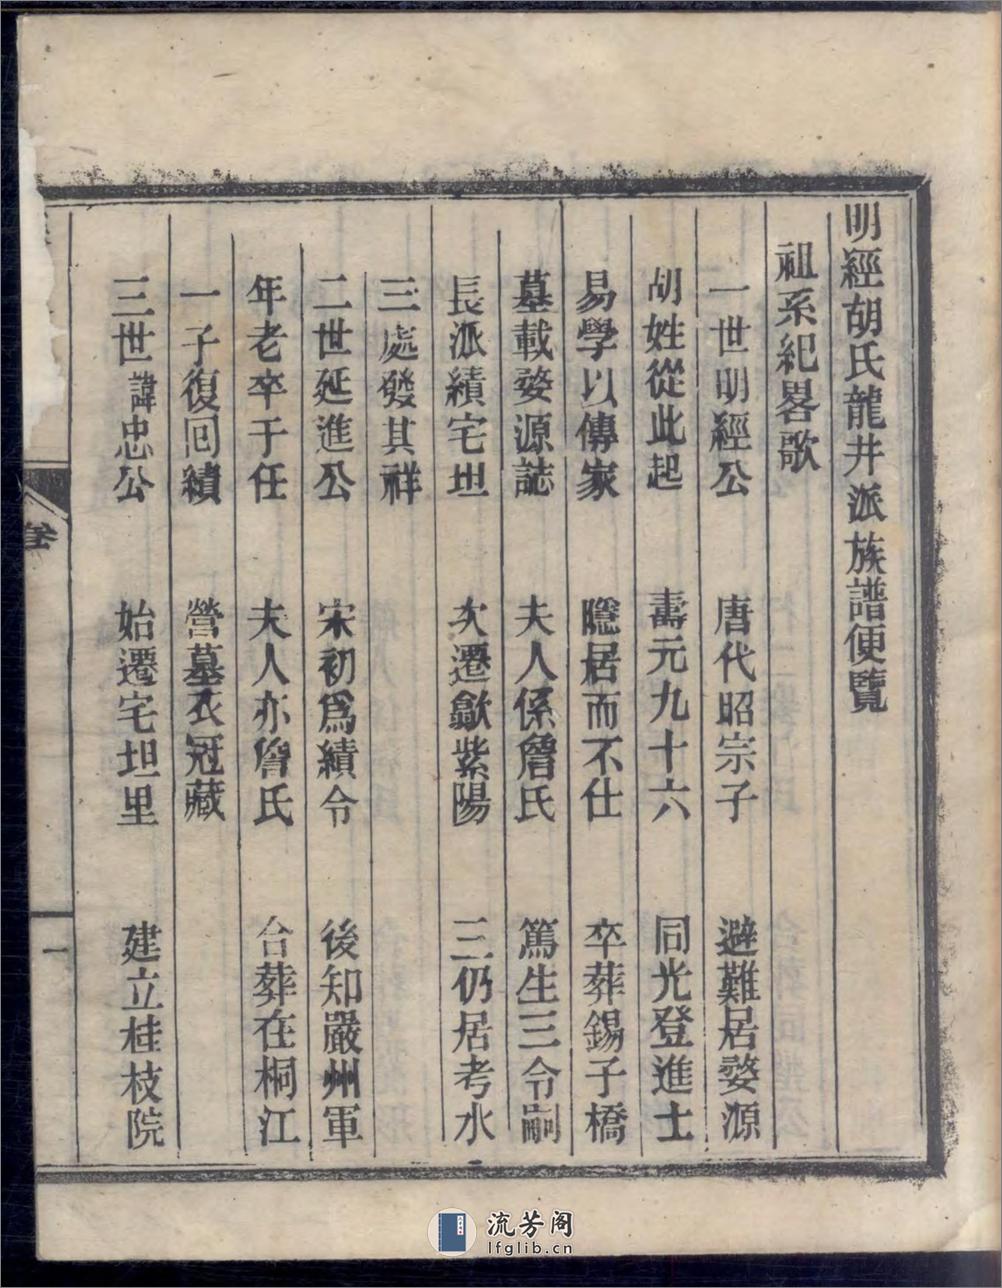 明經胡氏龍井派族譜便覽
祖系紀畧歌
一世明經公 唐代昭宗子 避難居婺源
胡姓從此起 壽元九十六 同光登進士
易學以傳家 隱居而不仕 卒葬錫子橋
墓載婺源誌 夫人係詹氏 篤生三令嗣
長派績宅坦 次遷歙紫陽 三仍居考水
三處發其祥
二世延進公 宋初爲績令 後知嚴州軍
年老卒于任 夫人亦詹氏 合葬在桐江
一子復回績 營墓衣冠藏
三世諱忠公 始遷宅坦里 建立桂枝院
一
流芳阁
lfglib.cn